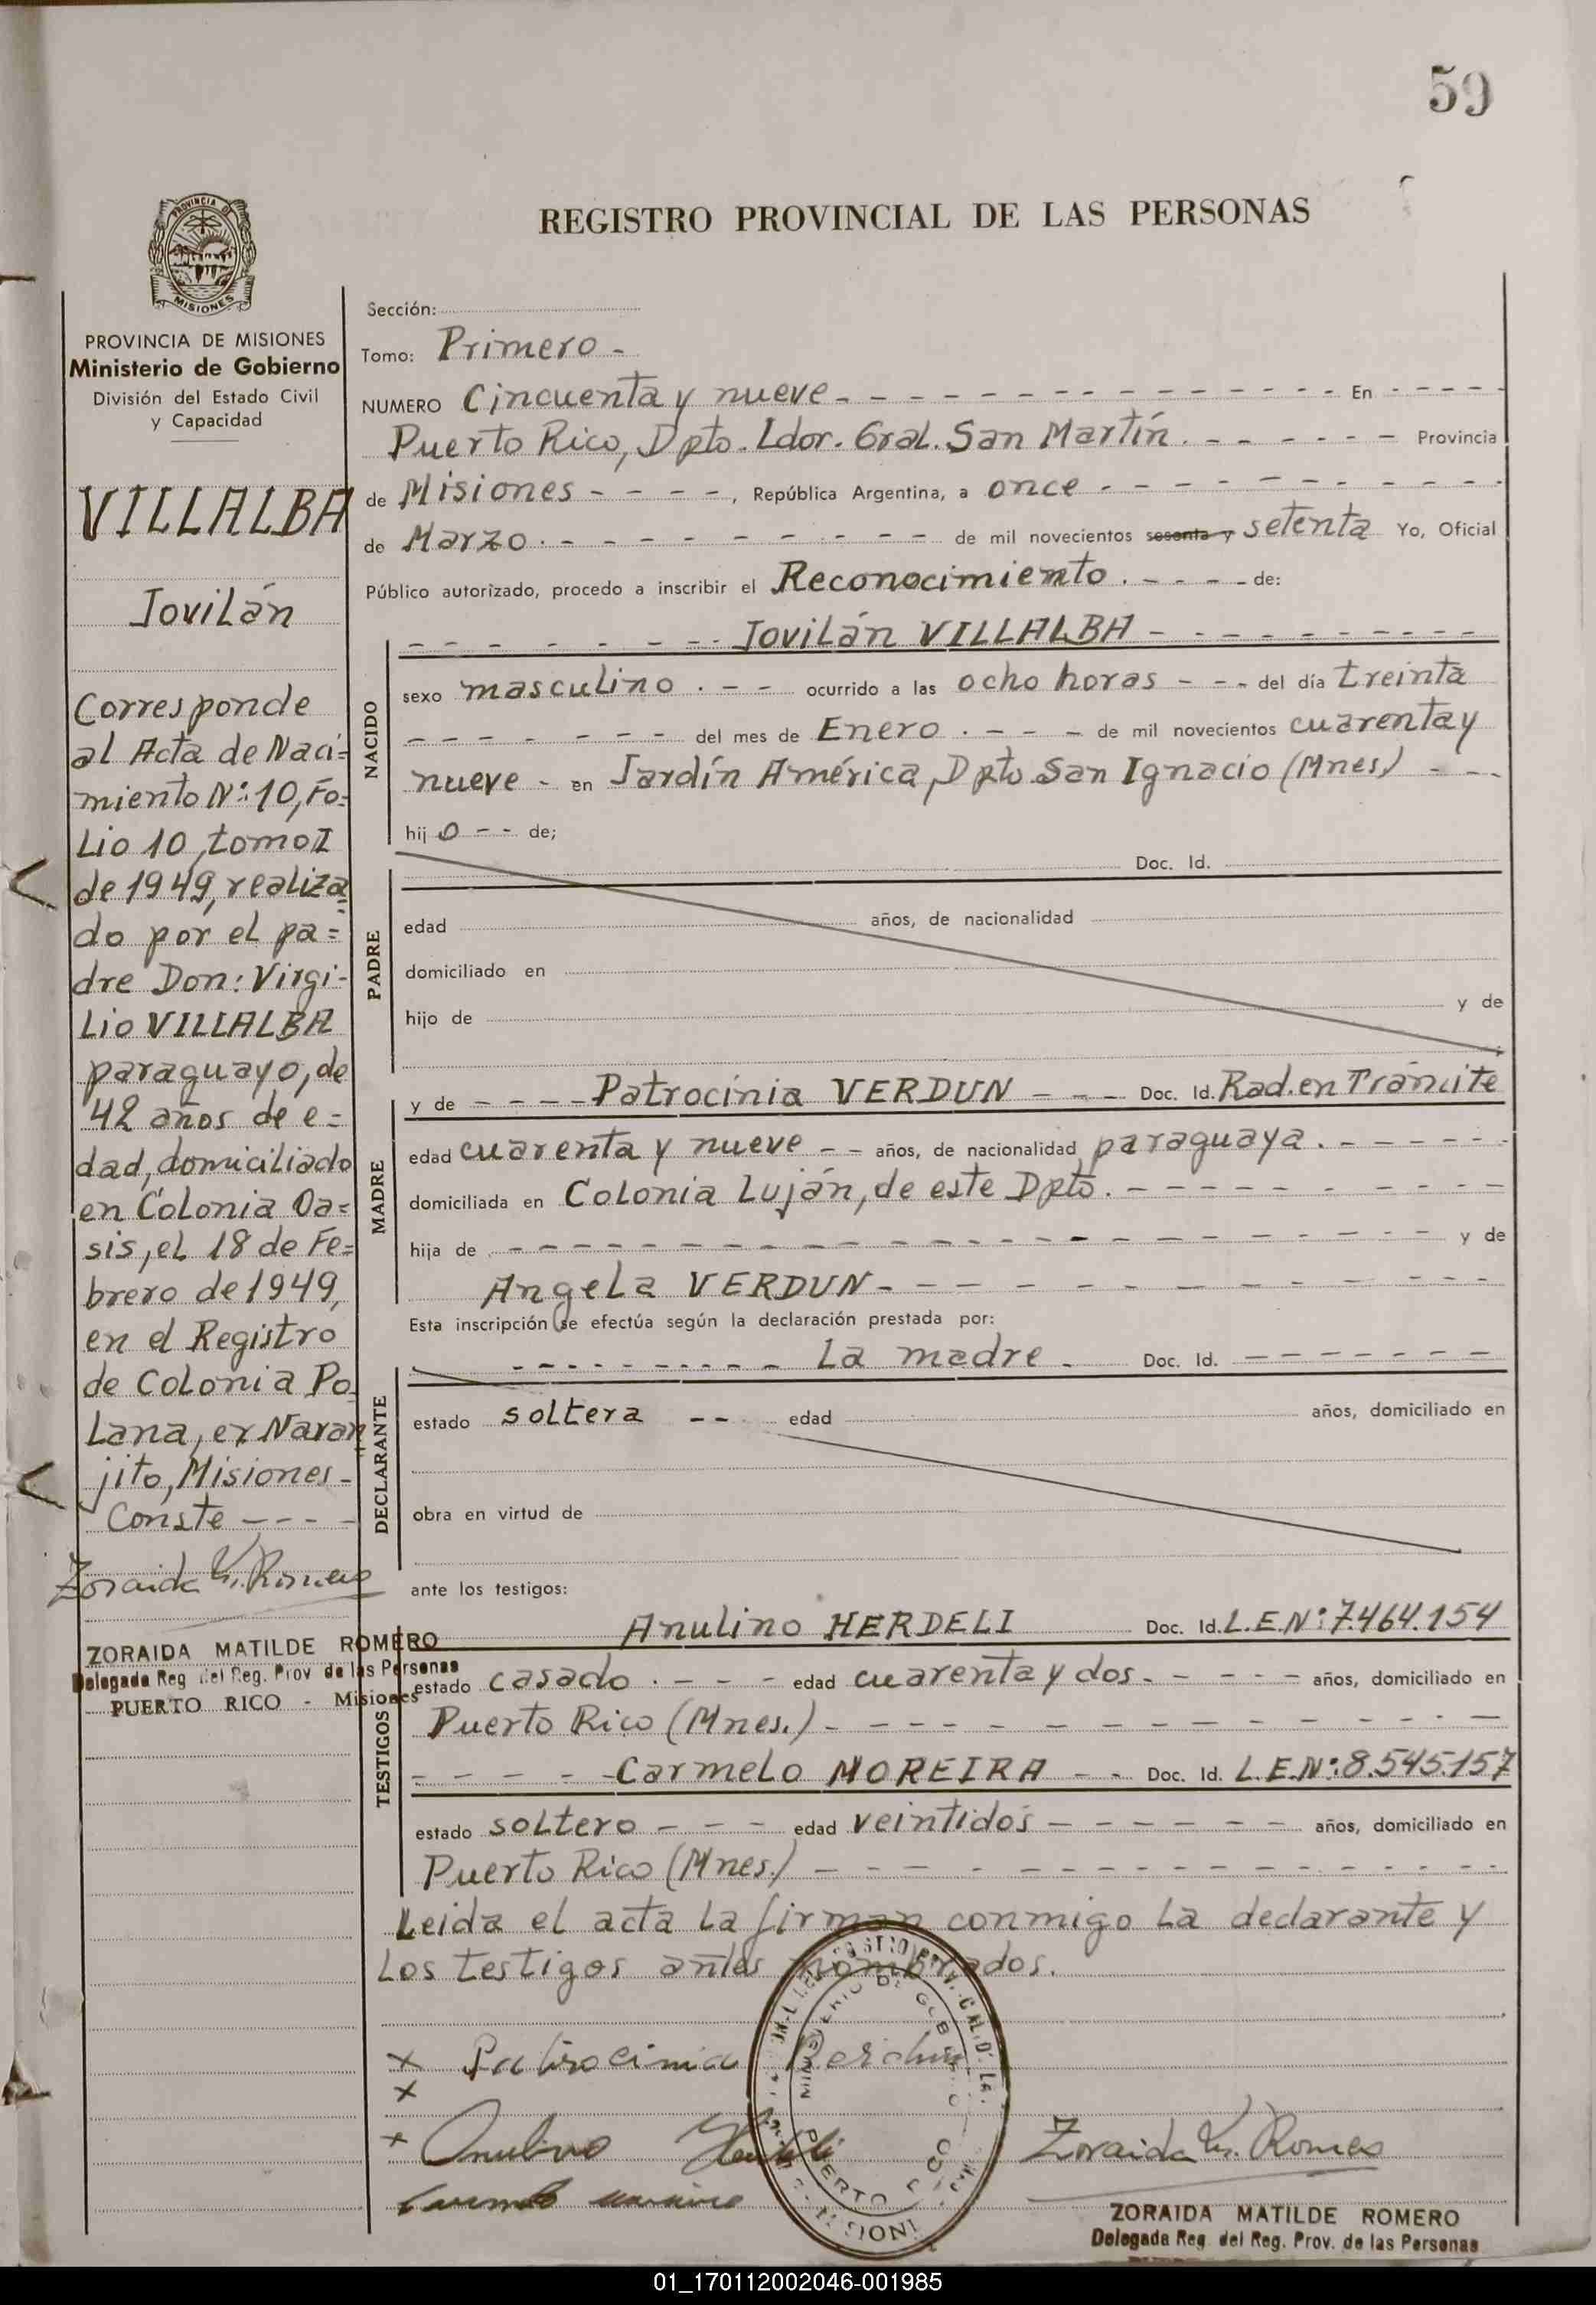 59
REGISTRO PROVINCIAL DE LAS PERSONAS
PROVINCIA DE
MISIONES
PROVINCIA DE MISIONES
Ministerio de Gobierno
División del Estado Civil
y Capacidad
VILLALBA
Jovilán
Corresponde
al Acta de Naci=
miento Nº:10, Fo=
lio 10, tomo I
de 1949, realiza=
do por el pa=
dre Don: Virgi-
lio VILLALBA
paraguayo, de
42 años de e=
dad, domiciliado
en Colonia Oa=
sis, el 18 de Fe=
brero de 1949,
en el Registro
de Colonia Po
lana, ex Naran
jito, Misiones-
Conste ----
Zoraida M. Romero
ZORAIDA MATILDE ROMERO
Delegada Reg del Reg. Prov de las Personas
PUERTO RICO - Misiones
Sección:
Tomo: Primero -
NUMERO Cincuenta y nueve - - - En - - -
Puerto Rico, Dpto. Ldor. Gral. San Martín. - - - Provincia
de Misiones - - - -, República Argentina, a once - - -
de Marzo. - - - de mil novecientos sesenta y setenta Yo, Oficial
Público autorizado, procedo a inscribir el Reconocimiento. - - - - de:
NACIDO
- - - Jovilán VILLALBA - - -
sexo masculino . - - ocurrido a las ocho horas - - - del día treinta
- - - del mes de Enero . - - - de mil novecientos cuarenta y
nueve - en Jardín América, Dpto San Ignacio (Mnes) - - -
hij o - - de;
PADRE
Doc. Id.
edad años, de nacionalidad
domiciliado en
hijo de y de
MADRE
y de - - - - Patrocinia VERDUN - - - Doc. Id. Rad. en Trámite
edad cuarenta y nueve - - años, de nacionalidad paraguaya. - - -
domiciliada en Colonia Luján, de este Dpto. - - -
hija de - - - y de
Angela VERDUN - - -
Esta inscripción se efectúa según la declaración prestada por:
DECLARANTE
- - - La madre - Doc. Id. - - -
estado soltera - - edad años, domiciliado en
obra en virtud de
ante los testigos:
TESTIGOS
Anulino HERDELI Doc. Id. L.E.Nº:7.464.154
estado casado . - - - edad cuarenta y dos. - - - años, domiciliado en
Puerto Rico (Mnes.) - - -
- - - - Carmelo MOREIRA - - Doc. Id. L.E.Nº:8.545.157
estado soltero - - - edad veintidós - - - años, domiciliado en
Puerto Rico (Mnes.) - - -
Leida el acta la firman conmigo la declarante y
los testigos antes nombrados.
x Patrocinia Verdun
x
x Anulino Herdeli
Zoraida M. Romero
MINISTERIO DE GOBIERNO
PUERTO RICO
ZORAIDA MATILDE ROMERO
Delegada Reg. del Reg. Prov. de las Personas
01_170112002046-001985